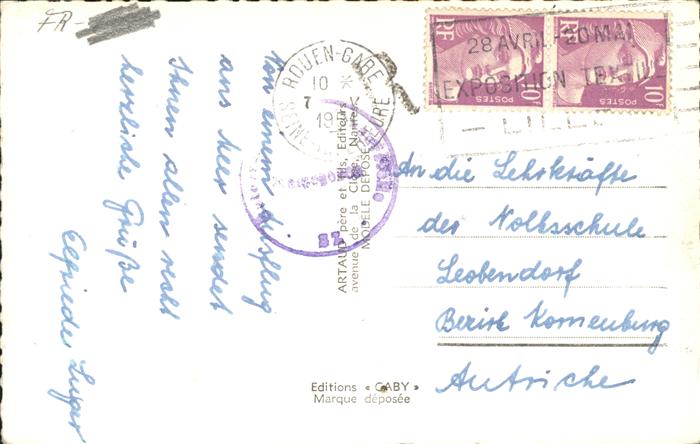 FR-
Von einem Ausflug
ans Meer sendet
Ihnen allen recht
herzliche Grüße
Elfriede
ROUEN-GARE
10 *
7
19
SEINE
28 AVRIL-20 MAI
EXPOSITION
RF
POSTES
10F
RF
POSTES
10F
37
ARTAUD père et fils, Editeurs
avenue de la Close, Nantes
MODELE DEPOSE
An die Lehrkräfte
der Volksschule
Leobendorf
Bezirk Korneuburg
Autriche
Editions « GABY »
Marque déposée